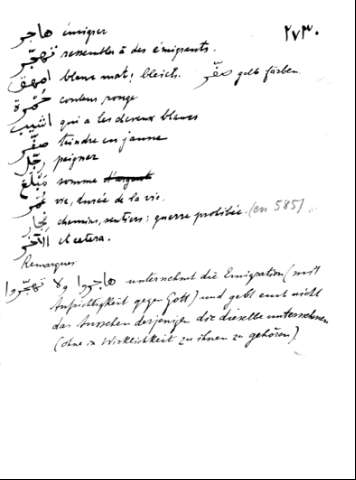 ٢٧٣٠
هاجر émigrer
تهجّر ressembler à des émigrants.
امهق blanc mat; bleich. صفّر gelb färben.
حُمْرة couleur rouge
اشيب qui a les cheveux blancs
صفّر teindre en jaune
رجّل peigner
مَبْلَغ somme d'argent
عُمر vie, durée de la vie.
فِجار chemins, sentiers; guerre prohibée. (en 585)
الآخر et cetera.
Remarques:
هاجروا ولا تهجّروا unternehmt die Emigration (mit
Aufrichtigkeit gegen Gott) und gebt euch nicht
das Aussehen derjenigen die dieselbe unternehmen
(ohne in Wirklichkeit zu ihnen zu gehören)